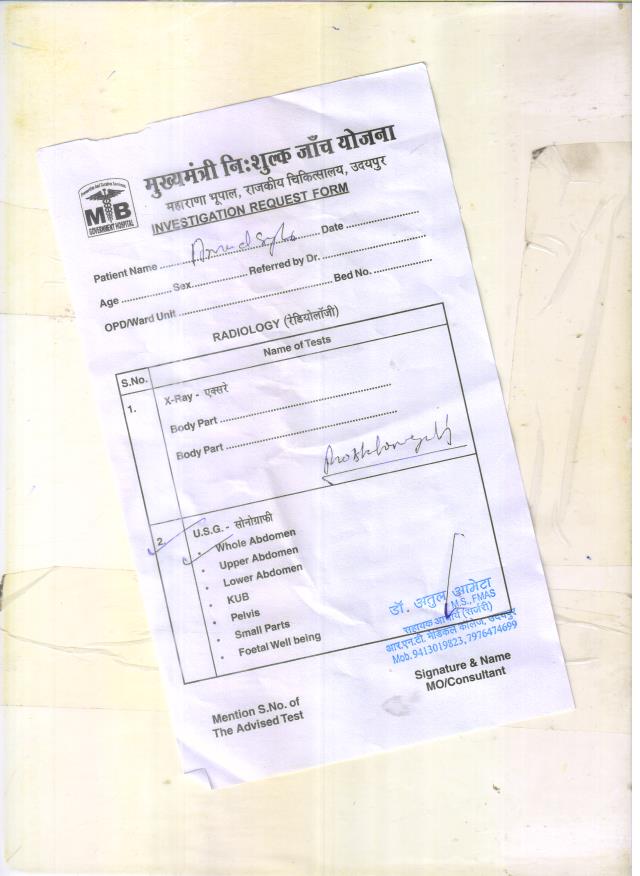 मुख्यमंत्री निःशुल्क जाँच योजना
महाराणा भूपाल, राजकीय चिकित्सालय, उदयपुर
INVESTIGATION REQUEST FORM
MB
GOVERNMENT HOSPITAL
Patient Name ........................ Date ........................
Age ............... Sex ................ Referred by Dr. ........................
OPD/Ward Unit ........................ Bed No. ........................
RADIOLOGY (रेडियोलॉजी)
S.No. Name of Tests
1. X-Ray - एक्सरे
Body Part ........................
Body Part ........................
2. U.S.G. - सोनोग्राफी
• Whole Abdomen
• Upper Abdomen
• Lower Abdomen
• KUB
• Pelvis
• Small Parts
• Foetal Well being
डॉ. अतुल आमेटा
M.S., FMAS
सहायक आचार्य (सर्जरी)
आर.एन.टी. मेडिकल कॉलेज, उदयपुर
Mob. 9413019823, 7976474699
Signature & Name
MO/Consultant
Mention S.No. of
The Advised Test